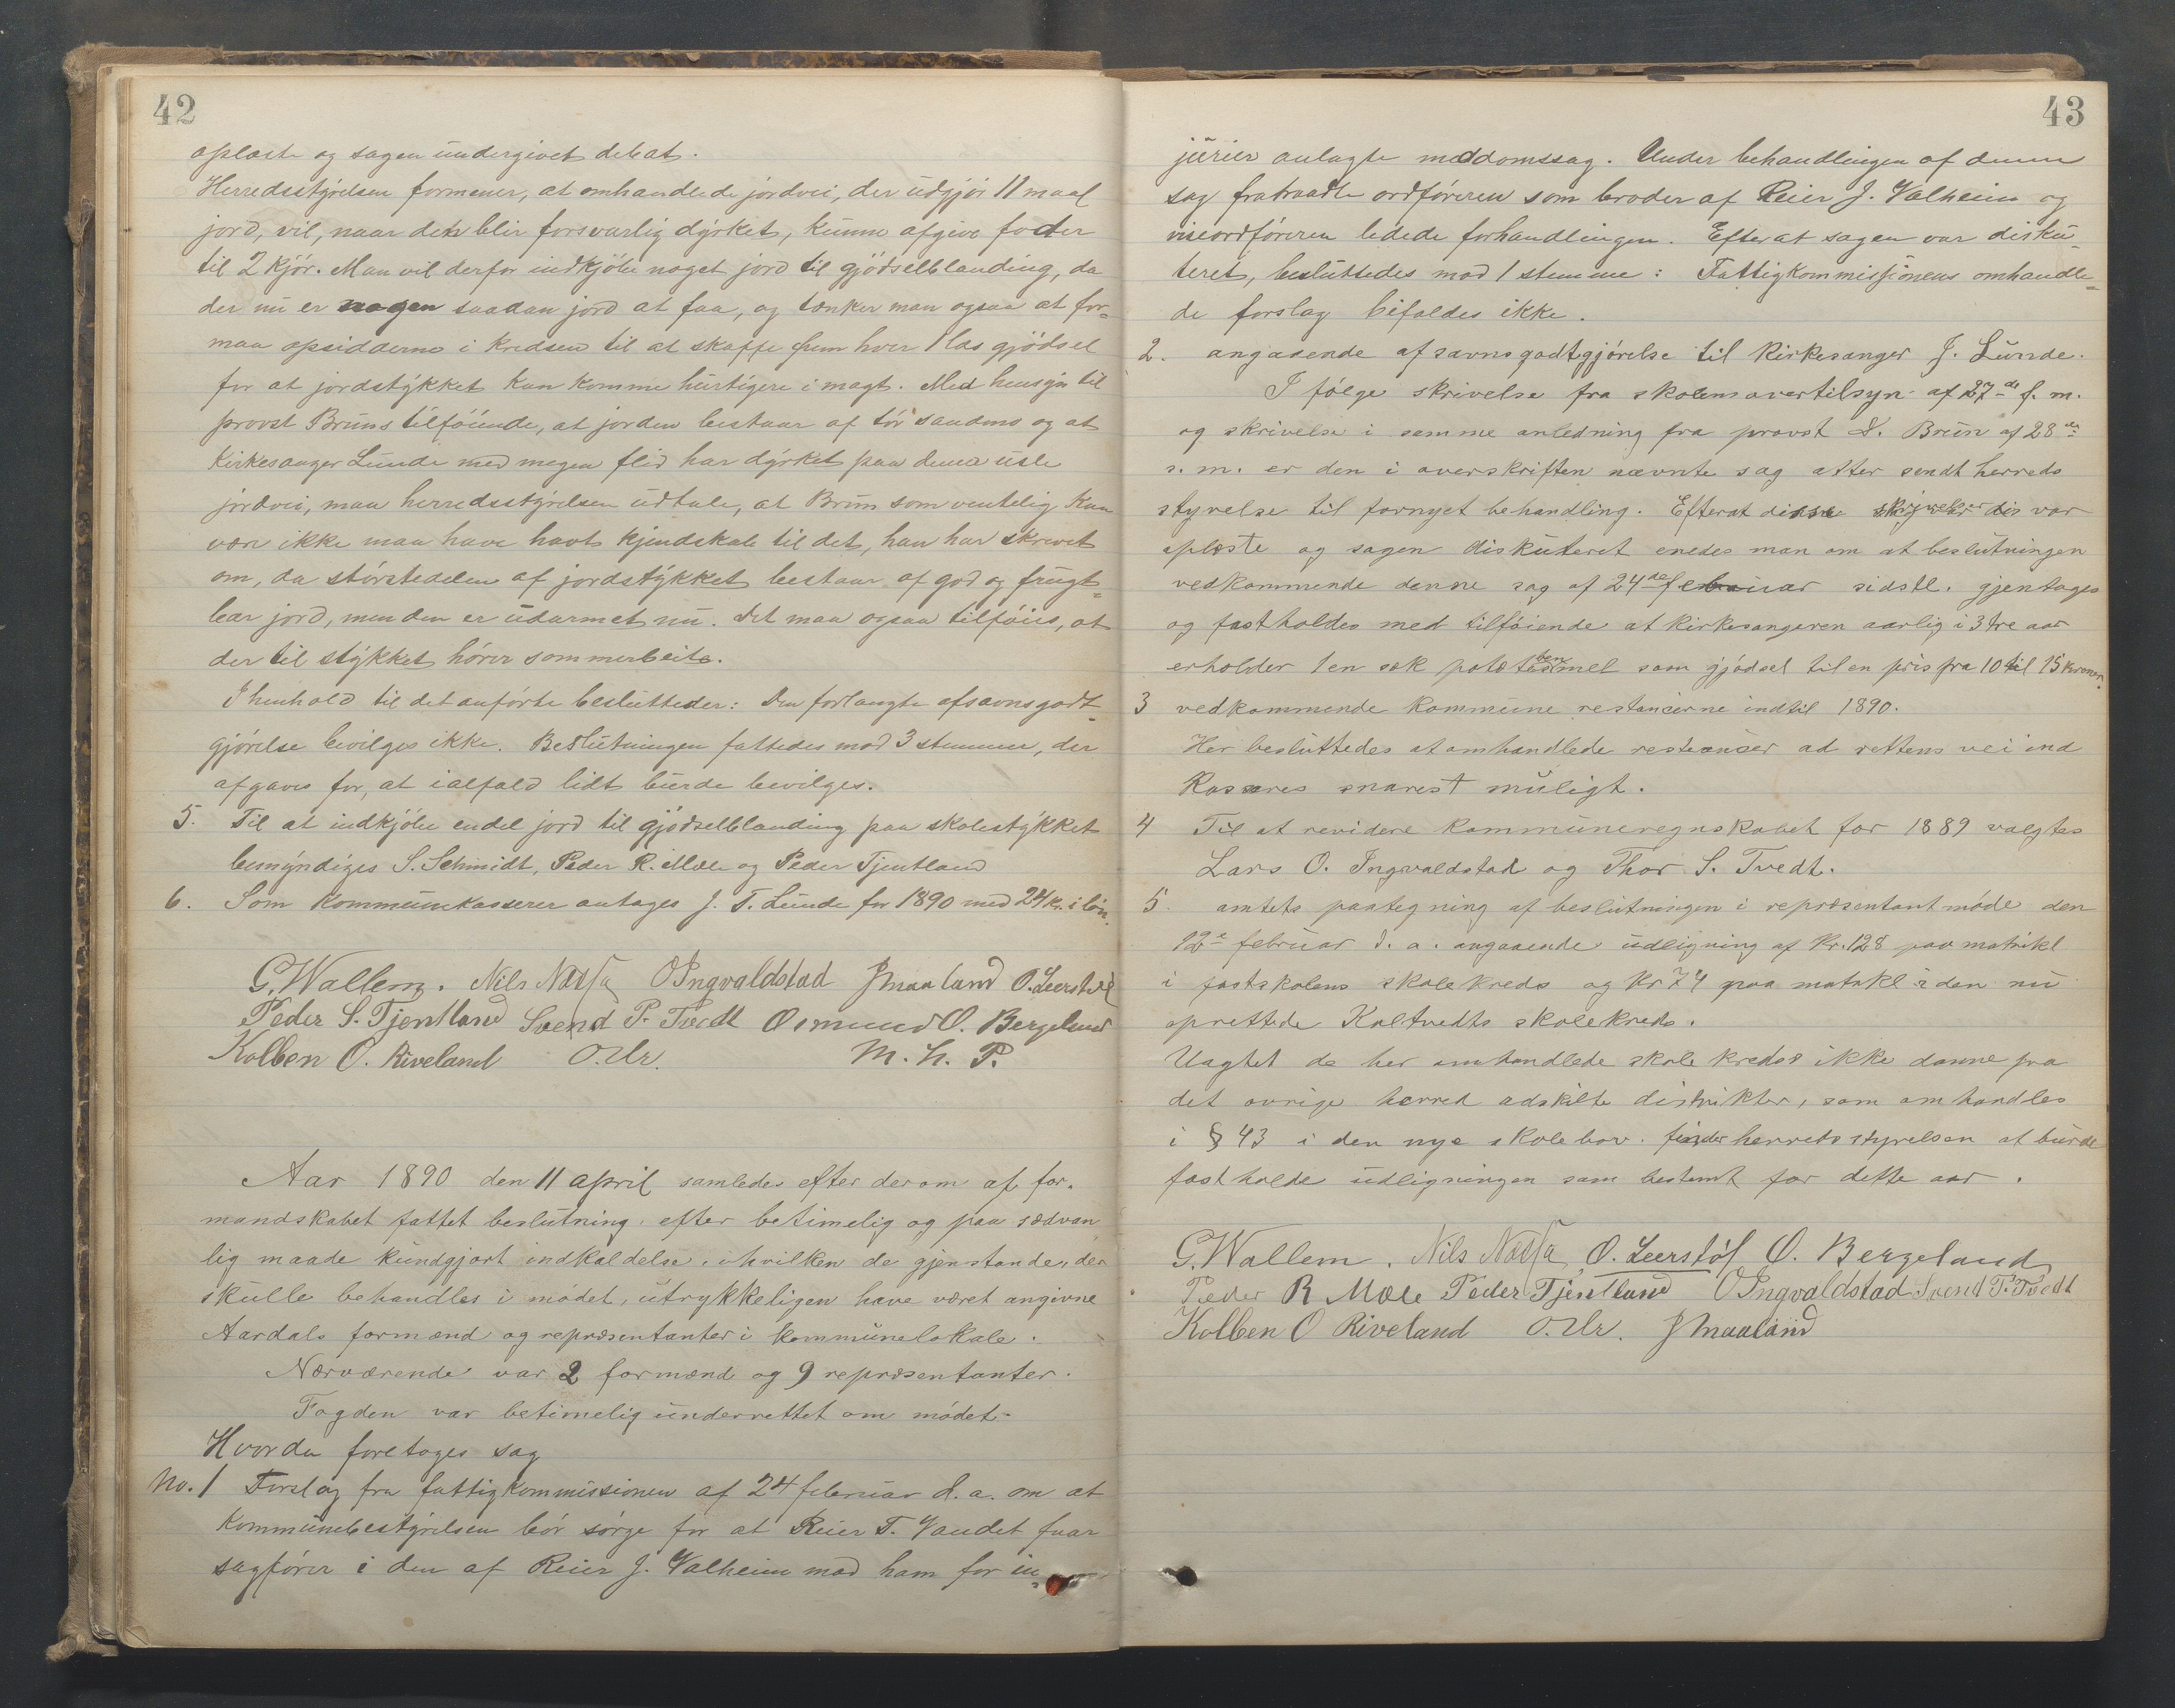 42
oplæste og sagen undergivet debat.
Herredsstyrelsen formener, at omhandlede jordvei, der udgjør 11 maal
jord, vil, naar den blir forsvarlig dyrket, kunne afgive foder
til 2 kjør. Man vil derfor indkjøbe noget jord til gjødselblanding, da
der nu er nogen saadan jord at faa, og tænker man ogsaa at for=
maa opsidderne i kredsen til at skaffe frem hver 1 læs gjødsel
for at jordstykket kan komme hurtigere i magt. Med hensyn til
provst Bruns tilføiende, at jorden bestaar af tør sandmo og at
kirkesanger Lunde med megen flid har dyrket paa denne usle
jordvei, maa herredsstyrelsen udtale, at Brun som ventelig kan
være ikke maa have havt kjendskab til det, han har skrevet
om, da størstedelen af jordstykket bestaar af god og frugt=
bar jord, men den er udarmet nu. Det maa ogsaa tilføies, at
der til stykket hører sommerbeite.
I henhold til det anførte besluttedes: Den forlangte afsavnsgodt=
gjørelse bevilges ikke. Beslutningen fattedes mod 3 stemmer, der
afgaves for, at ialfald lidt burde bevilges.
5. Til at indkjøbe endel jord til gjødselblanding paa skolestykket
bemyndiges S. Schmidt, Peder R. Mæle og Peder Tjentland
6. Som kommunekasserer antages J. T. Lunde for 1890 med 24 k. i løn.
G. Wallem. Nils Næssa O Ingvaldstad J Maaland O. Leerstøl
Peder S. Tjentland Svend P. Tvedt Osmund O. Bergeland
Kolben O. Riveland O. Ur. M. h. P.
Aar 1890 den 11 april samledes efter derom af for.
mandskabet fattet beslutning, efter betimelig og paa sædvan
lig maade kundgjort indkaldelse, i hvilken de gjenstande, der
skulle behandles i mødet, utrykkeligen have været angivne
Aardals formænd og repræsentanter i kommunelokale.
Nærværende var 2 formænd og 9 repræsentanter.
Fogden var betimelig underrettet om mødet.
Hvorda foretoges sag
No. 1 Forslag fra fattigkommissionen af 24 februar d. a. om at
kommunebestyrelsen bør sørge for at Reier T. Vandet faar
sagfører i den af Reier J. Valheim mod ham for in=
43
jurier anlagte meddomssag. Under behandlingen af denne
sag fratraadte ordføreren som broder af Reier J. Valheim og
viseordføreren ledede forhandlingen. Efterat sagen var disku=
teret, besluttedes mod 1 stemme: Fattigkommissionens omhandle=
de forslag bifaldes ikke.
2. angaaende afsavnsgodtgjørelse til kirkesanger J. Lunde.
I følge skrivelse fra skolens overtilsyn af 27de f. m.
og skrivelse i samme anledning fra provst S. Brun af 28de
s. m. er den i overskriften nævnte sag atter sendt herreds
styrelse til fornyet behandling. Efterat disse skrivelser var
oplæste og sagen diskuteret enedes man om at beslutningen
vedkommende denne sag af 24de februar sidstl. gjentages
og fastholdes med tilføiende at kirkesangeren aarlig i 3 tre aar
erholder 1 en sæk potetesbenmel som gjødsel til en pris fra 10 til 15 kroner.
3 vedkommende kommune restancerne indtil 1890.
Her besluttedes at omhandlede restancer ad rettens vei ind
kasseres snarest muligt.
4 Til at revidere kommuneregnskabet for 1889 valgtes
Lars O. Ingvaldstad og Thor S. Tvedt.
5. amtets paategning af beslutningen i repræsentantmøde den
12te februar d. a. angaaende udligning af kr. 128 paa matrikl
i fastskolens skolekreds og kr 74 paa matrkl i den nu
oprettede Kaltvedts skolekreds.
Uagtet de her omhandlede skole kredse ikke danne fra
det øvrige herred adskilte distrikter, som omhandles
i § 43 i den nye skolelov. finder herredsstyrelsen at burde
fastholde udligningen som bestemt for dette aar.
G. Wallem. Nils Næssa O. Leerstøl O. Bergeland
Peder R Mæle Peder Tjentland O Ingvaldstad Svend P. Tvedt
Kolben O Riveland O. Ur. J Maaland